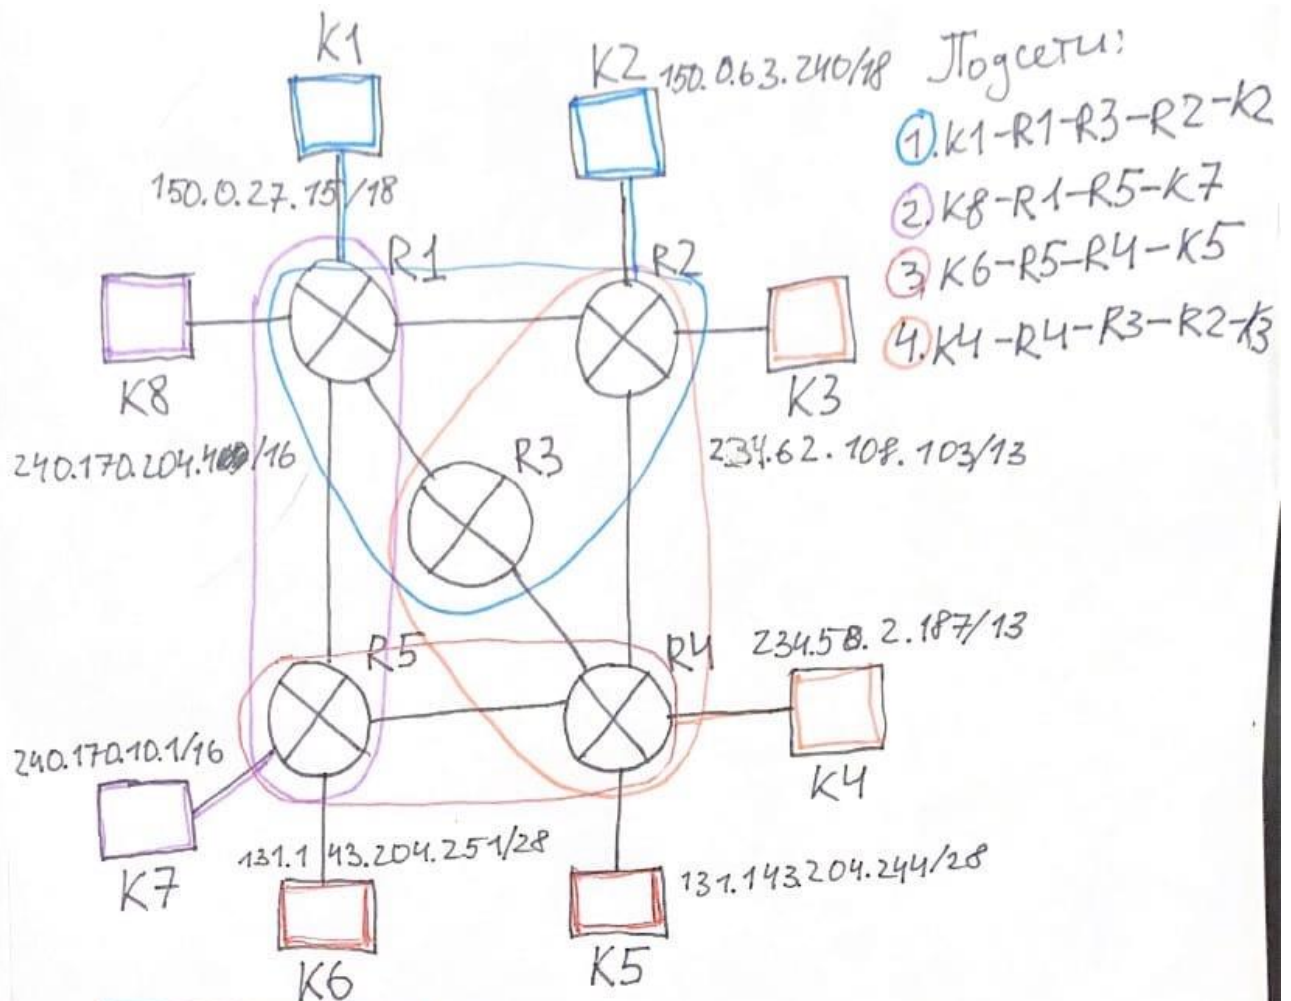 K1
K2 150.0.63.240/18
Подсети:
1. K1-R1-R3-R2-K2
2. K8-R1-R5-K7
3. K6-R5-R4-K5
4. K4-R4-R3-R2-K3
150.0.27.15/18
R1
R2
K8
K3
240.170.204. /16
R3
234.62.108.103/13
R5
R4
234.58.2.187/13
240.170.10.1/16
K4
K7
131.143.204.251/28
131.143.204.244/28
K6
K5